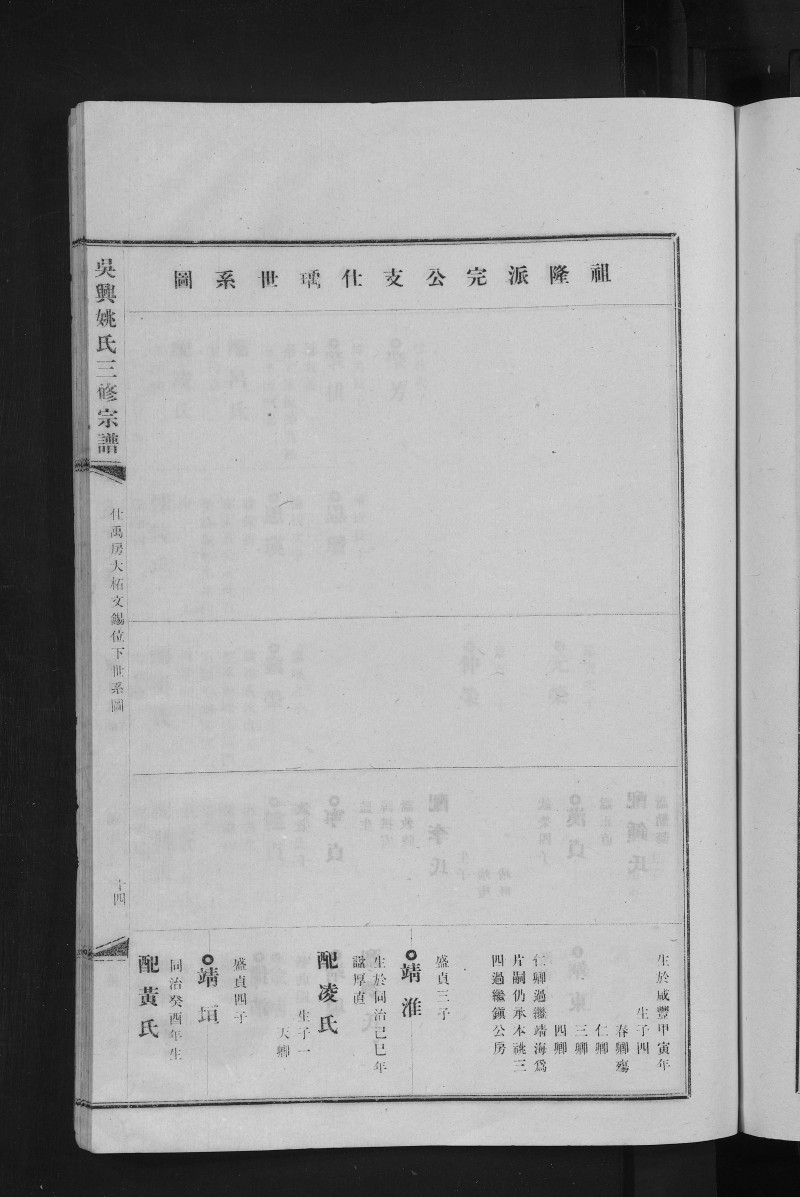 祖隆派完公支仕瑀世系圖
生於咸豐甲寅年
生子四
春卿殤
仁卿
三卿
四卿
仁卿過繼靖海爲
片嗣仍承本祧三
四過繼鎮公房
盛貞三子
靖淮
生於同治己巳年
諡厚直
配凌氏
生子一
天卿
盛貞四子
靖塤
同治癸酉年生
配黃氏
吳興姚氏三修宗譜
仕禹房大柘文錫位下世系圖
十四